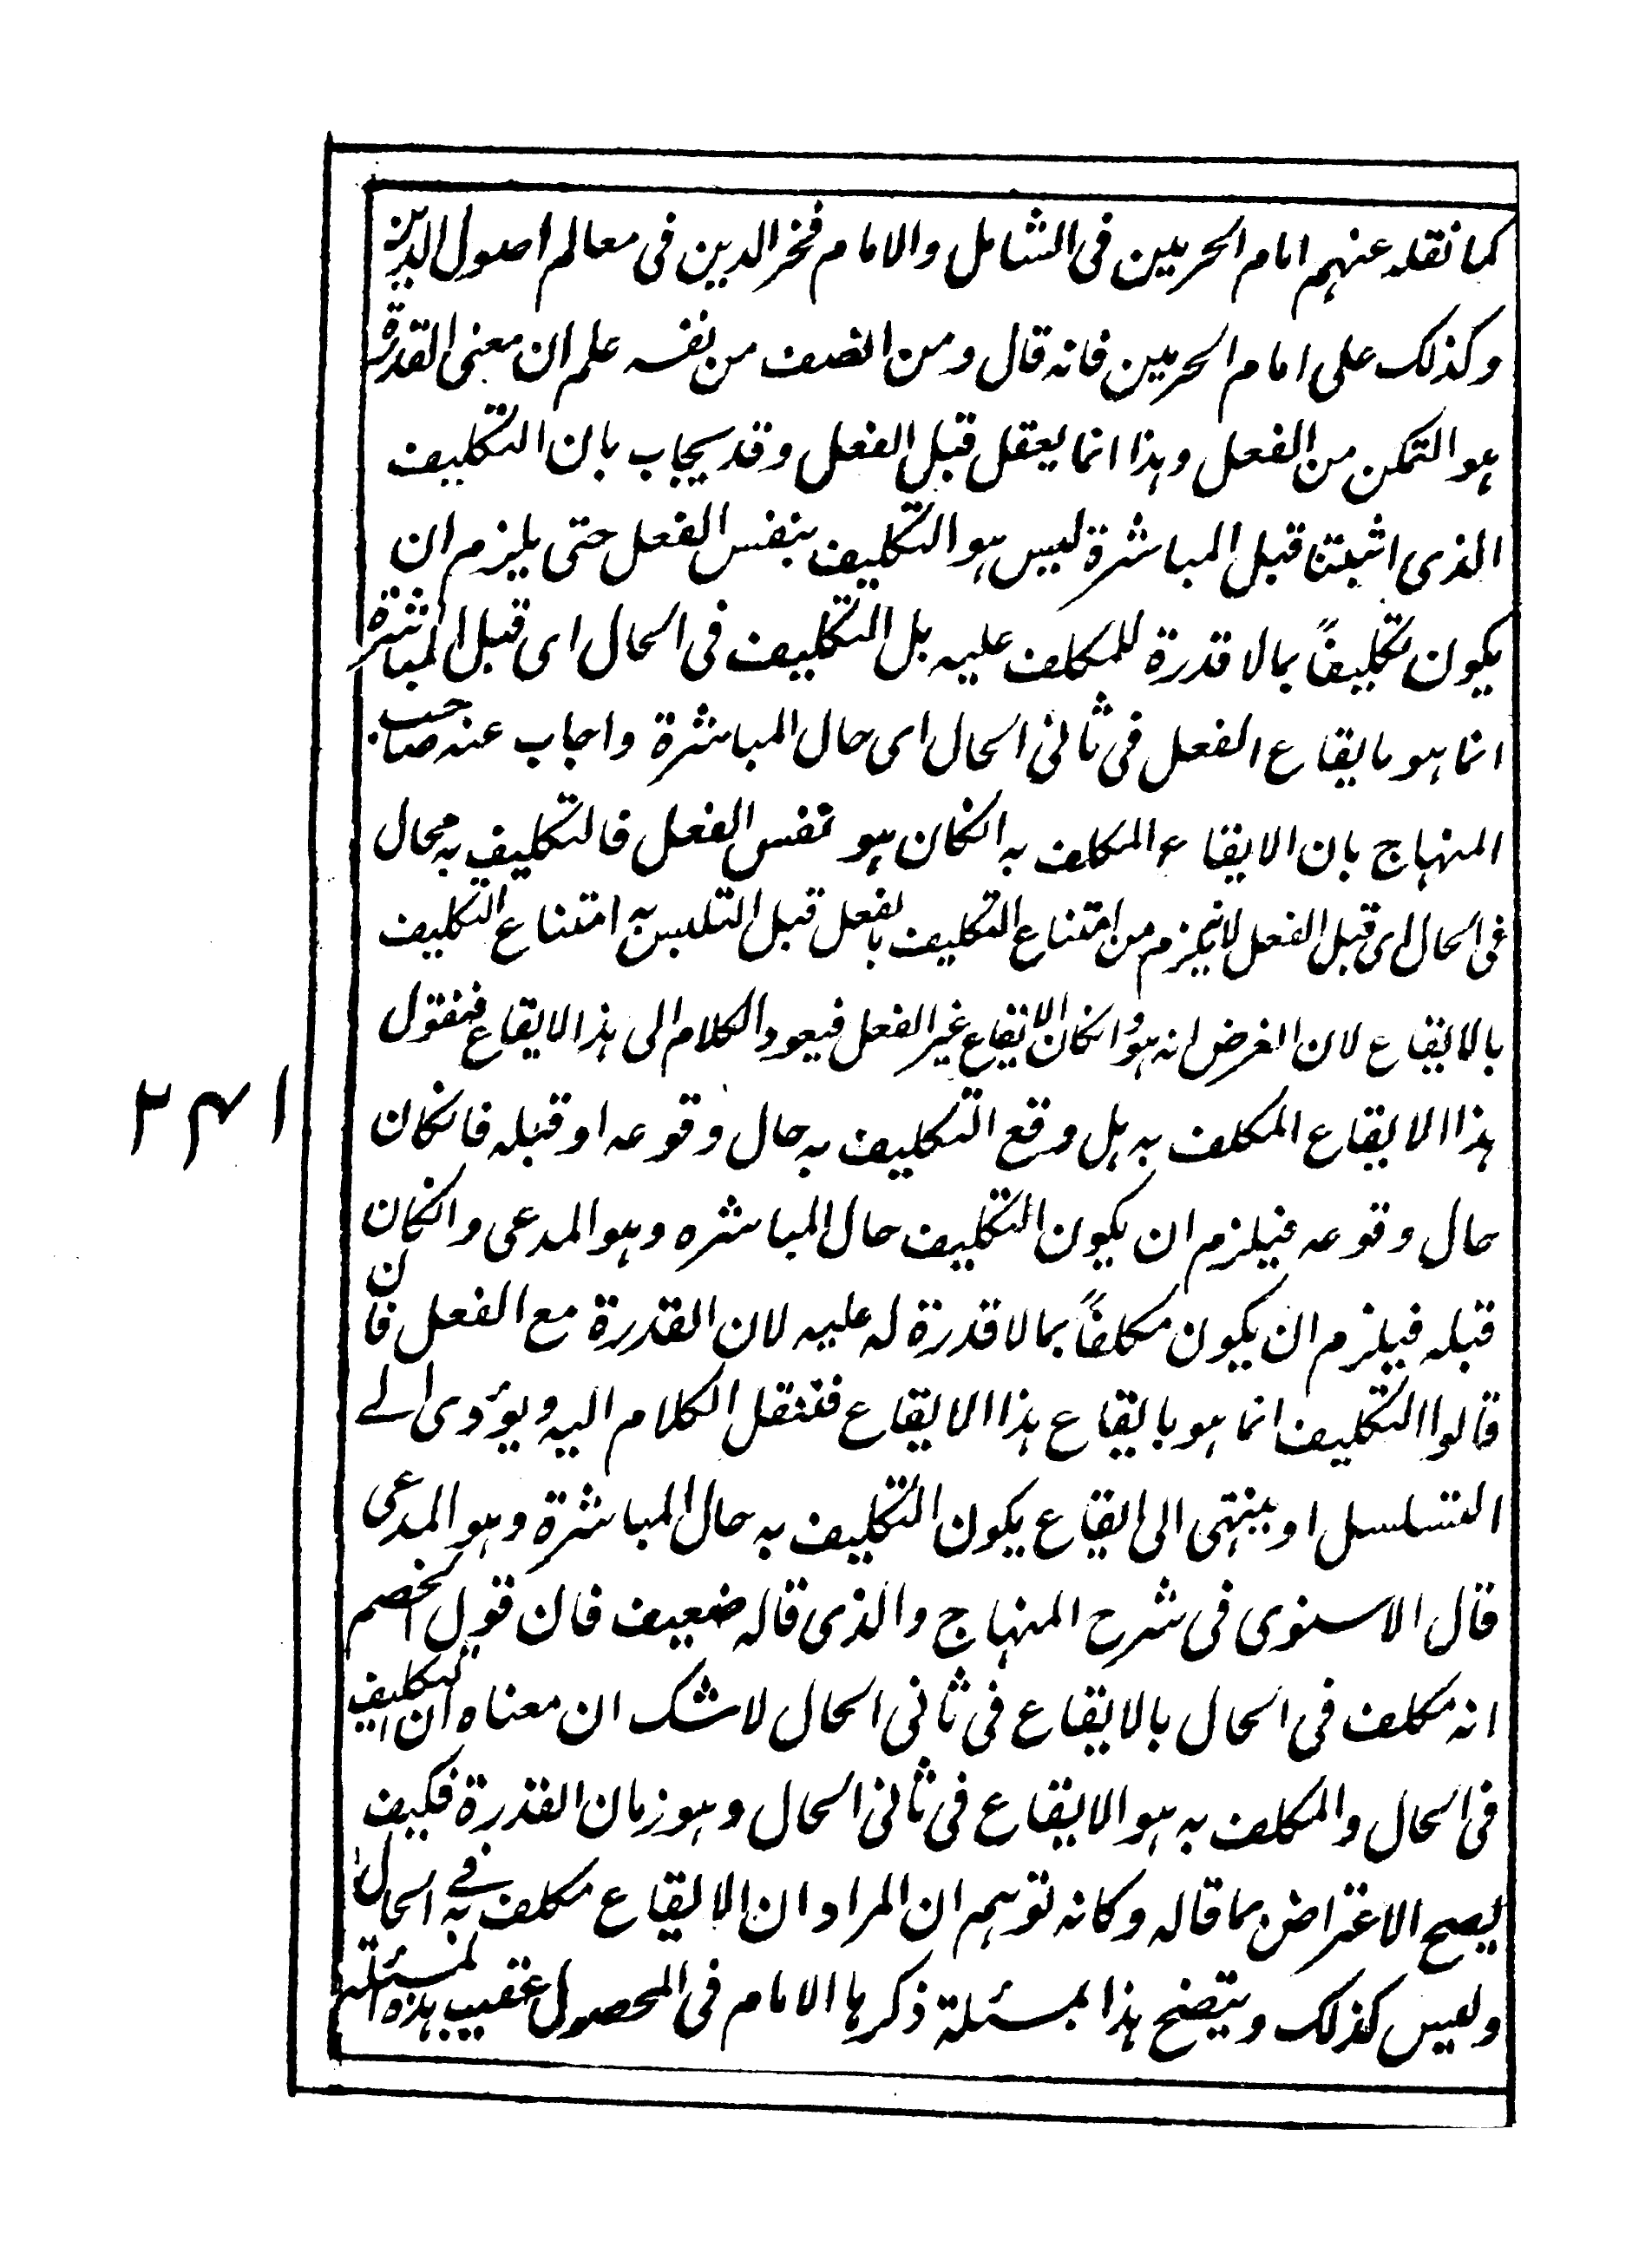 كما نقله عنهم امام الحرمين فى الشامل والامام فخر الدين فى معالم اصول الدين
وكذلك على امام الحرمين فانه قال ومن انصف من نفسه علم ان معنى القدرة
هو التمكن من الفعل وهذا انما يعقل قبل الفعل وقد يجاب بان التكليف
الذى اثبتنا قبل المباشرة ليس هو التكليف بنفس الفعل حتى يلزم ان
يكون تكليفاً بما لا قدرة للمكلف عليه بل التكليف فى الحال اى قبل المباشرة
انما هو بايقاع الفعل فى ثانى الحال اى حال المباشرة واجاب عنه صاحب
المنهاج بان الايقاع المكلف به انكان هو نفس الفعل فالتكليف به محال
فى الحال اى قبل الفعل لانه يلزم من امتناع التكليف بالفعل قبل التلبس به امتناع التكليف
بالايقاع لان الغرض انه هو وانكان الايقاع غير الفعل فيعود الكلام الى هذا الايقاع فنقول
هذا الايقاع المكلف به هل وقع التكليف به حال وقوعه او قبله فانكان
حال وقوعه فيلزم ان يكون التكليف حال المباشره وهو المدعى وانكان
قبله فيلزم ان يكون مكلفاً بما لا قدرة له عليه لان القدرة مع الفعل فان
قالوا التكليف انما هو بايقاع هذا الايقاع فننقل الكلام اليه ويؤدى الے
التسلسل او ينتهى الى ايقاع يكون التكليف به حال المباشرة وهو المدعى
قال الاسنوى فى شرح المنهاج والذى قاله ضعيف فان قول الخصم
انه مكلف فى الحال بالايقاع فى ثانى الحال لا شك ان معناه ان التكليف
فى الحال والمكلف به هو الايقاع فى ثانى الحال وهو زمان القدرة فكيف
يصح الاعتراض بما قاله وكانه توهم ان المراد ان الايقاع مكلف به فے الحال
وليس كذلك ويتضح هذا بمسئلة ذكرها الامام فى المحصول عقيب هذه المسئلة